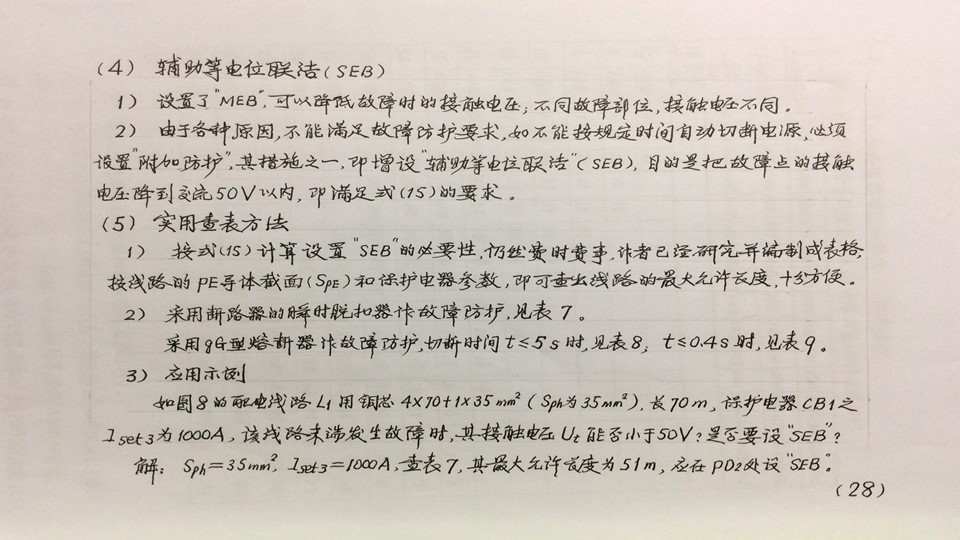 (4) 辅助等电位联洁(SEB)
1) 设置了"MEB",可以降低故障时的接触电压;不同故障部位,接触电压不同。
2) 由于各种原因,不能满足故障防护要求,如不能按规定时间自动切断电源,必须
设置"附加防护",其措施之一,即增设"辅助等电位联洁"(SEB),目的是把故障点的接触
电压降到交流50V以内,即满足式(15)的要求。
(5) 实用查表方法
1) 按式(15)计算设置"SEB"的必要性,仍然费时费事,作者已经研究并编制成表格;
按线路的PE导体截面(SPE)和保护电器参数,即可查出线路的最大允许长度,十分方便。
2) 采用断路器的瞬时脱扣器作故障防护,见表7。
采用gG型熔断器作故障防护,切断时间t≤5s时,见表8; t≤0.4s时,见表9。
3) 应用示例
如图8的配电线路L1用铜芯4X70+1X35mm²(Sph为35mm²),长70m,保护电器CB1之
Iset3为1000A,该线路末端发生故障时,其接触电压Ut能否小于50V?是否要设"SEB"?
解: Sph=35mm², Iset3=1000A,查表7,其最大允许长度为51m,应在PD2处设"SEB"。
(28)